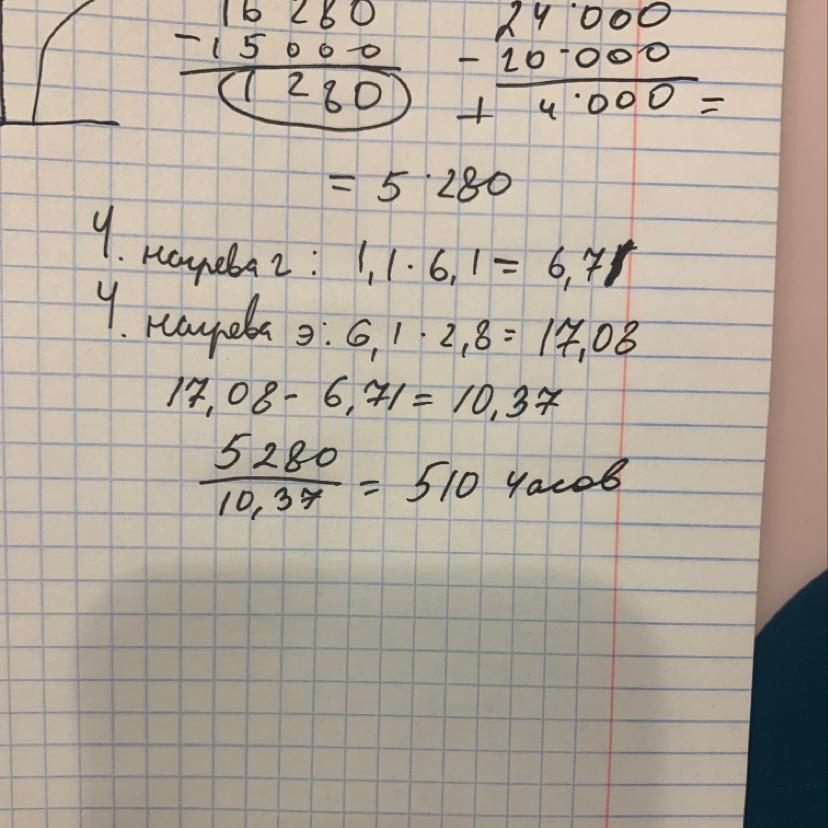 16 280
24·000
-15000
- 20·000
1 280
+ 4·000 =
= 5·280
Ч. нагрева г: 1,1·6,1 = 6,71
Ч. нагрева э: 6,1·2,8= 17,08
17,08- 6,71 = 10,37
5280
10,37
= 510 часов